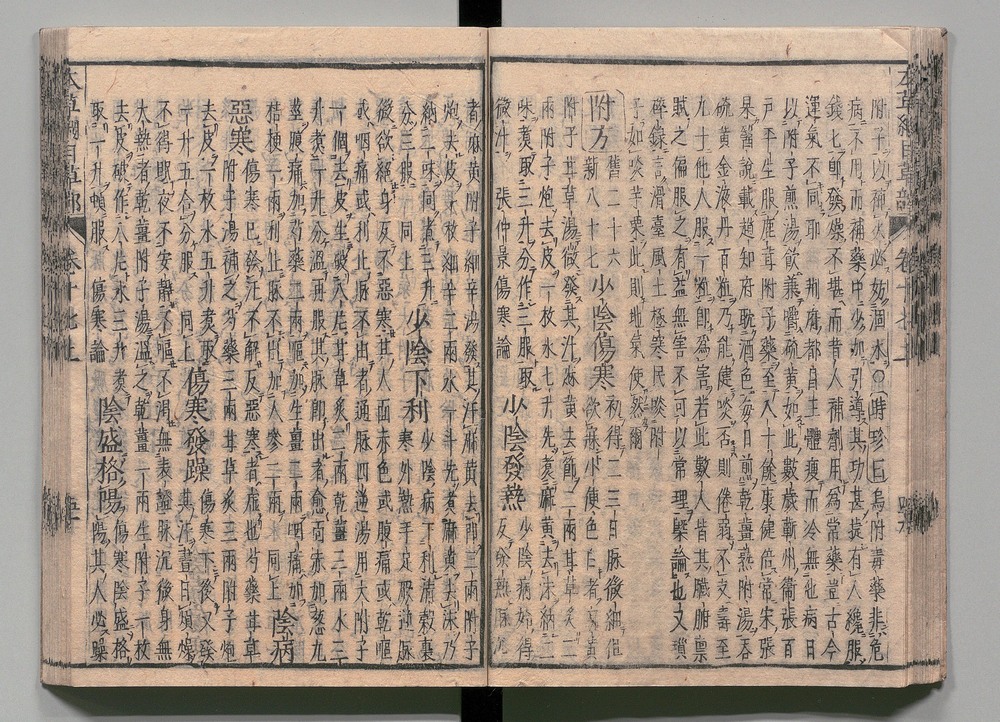 附子以補火必妨涸水○時珍曰烏附毒藥非危
病不用而補藥中少加引導其功甚捷有人纔服
錢七卽發燥不堪而昔人補劑用為常藥豈古今
運氣不同耶荊府都昌王體瘦而冷無他病日
以附子煎湯飲兼嚼硫黃如此數歲蘄州衞張百
戶平生服鹿茸附子藥至八十餘康健倍常宋張
杲醫說載趙知府耽酒色每日煎乾薑熟附湯吞
硫黃金液丹百粒乃能健啖否則倦弱不支壽至
九十他人服一粒卽為害若此數人皆其臟腑稟
賦之偏服之有益無害不可以常理槩論也又瑣
碎錄言滑臺風土極寒民啖附
子如啖芋栗此則地氣使然爾
附方 舊二十六 新八十七 少陰傷寒 初得二三日脈微細但欲寐小便色白者麻黃
附子甘草湯微發其汗麻黃去節二兩甘草炙二
兩附子炮去皮一枚水七升先煮麻黃去沫納二
味煮取三升分作三服取
微汗張仲景傷寒論 少陰發熱 少陰病始得反發熱脈沉
者麻黃附子細辛湯發其汗麻黃去節二兩附子
炮去皮一枚細辛二兩水一斗先煮麻黃去沫乃
納二味同煮三升
分三服同上 少陰下利 少陰病下利清穀裏寒外熱手足厥逆脈
微欲絕身反不惡寒其人面赤色或腹痛或乾嘔
或咽痛或利止脈不出者通脈四逆湯用大附子
一個去皮生破八片甘草炙二兩乾薑三兩水三
升煮一升分溫再服其脈卽出者愈面赤加葱九
莖腹痛加芍藥二兩嘔加生薑二兩咽痛加
桔梗一兩利止脈不出加人參二兩同上 陰病
惡寒 傷寒已發汗不解反惡寒者虛也芍藥甘草附子湯補之芍藥三兩甘草炙三兩附子炮
去皮一枚水五升煮取
一升五合分服同上 傷寒發躁 傷寒下後又發其汗晝日煩燥
不得眠夜而安靜不嘔不渴無表證脈沉微身無
大熱者乾薑附子湯溫之乾薑一兩生附子一枚
去皮破作八片水三升煮
取一升頓服傷寒論 陰盛格陽 傷寒陰盛格陽其人必躁
本草綱目草部 卷十七上